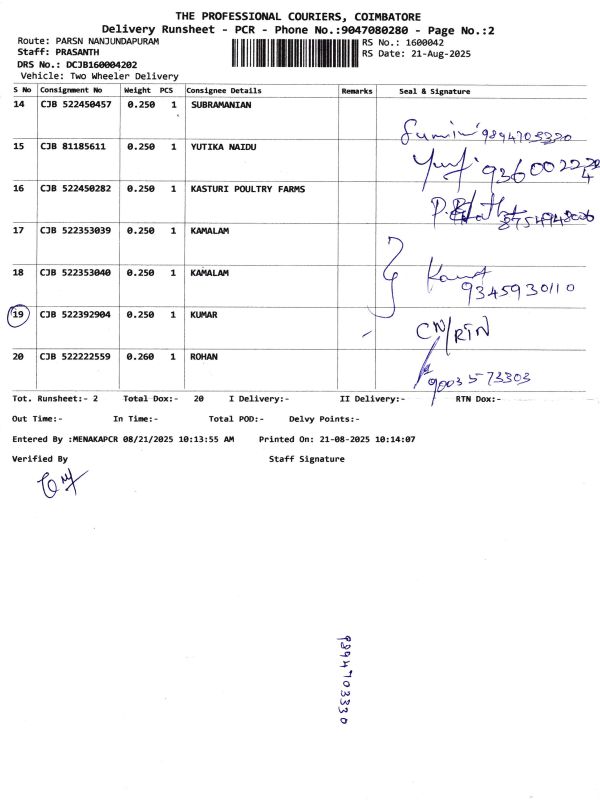 THE PROFESSIONAL COURIERS, COIMBATORE
Delivery Runsheet - PCR - Phone No.:9047080280 - Page No.:2
Route: PARSN NANJUNDAPURAM
Staff: PRASANTH
DRS No.: DCJB160004202
Vehicle: Two Wheeler Delivery
RS No.: 1600042
RS Date: 21-Aug-2025
S No Consignment No Weight PCS Consignee Details Remarks Seal & Signature
14 CJB 522450457 0.250 1 SUBRAMANIAN
15 CJB 81185611 0.250 1 YUTIKA NAIDU
16 CJB 522450282 0.250 1 KASTURI POULTRY FARMS
17 CJB 522353039 0.250 1 KAMALAM
18 CJB 522353040 0.250 1 KAMALAM
9345930110
19 CJB 522392904 0.250 1 KUMAR CN/RTN
20 CJB 522222559 0.260 1 ROHAN
9003573303
Tot. Runsheet:- 2 Total Dox:- 20 I Delivery:- II Delivery:- RTN Dox:-
Out Time:- In Time:- Total POD:- Delvy Points:-
Entered By :MENAKAPCR 08/21/2025 10:13:55 AM Printed On: 21-08-2025 10:14:07
Verified By Staff Signature
9894703330